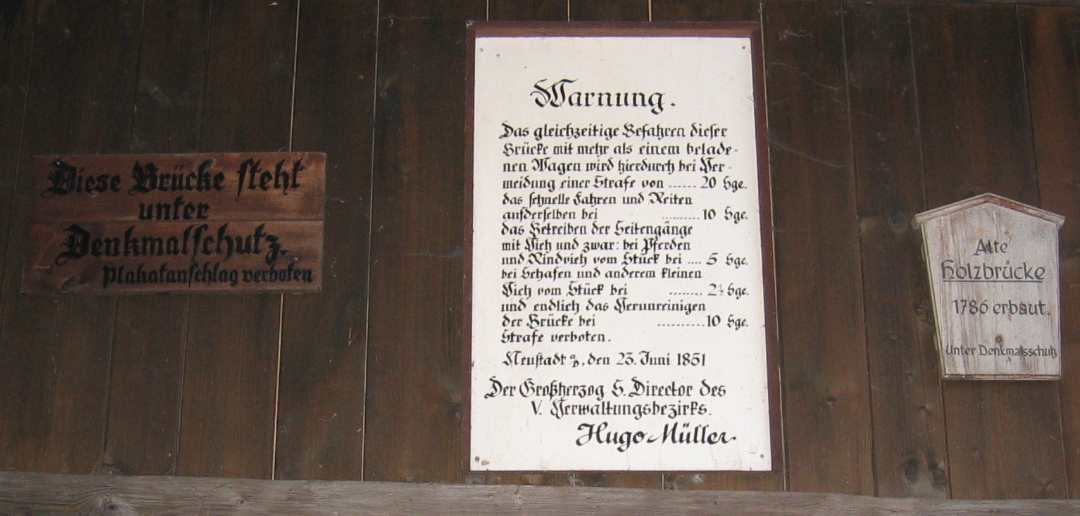 Diese Brücke steht
unter
Denkmalschutz.
Plakatanschlag verboten
Warnung.
Das gleichzeitige Befahren dieser
Brücke mit mehr als einem belade-
nen Wagen wird hierdurch bei Ver-
meidung einer Strafe von ...... 20 Sgr.
das schnelle Fahren und Reiten
aufderselben bei .......... 10 Sgr.
das Betreiben der Seitengänge
mit Vieh und zwar: bei Pferden
und Rindvieh vom Stück bei .... 5 Sgr.
bei Schafen und anderem kleinen
Vieh vom Stück bei ......... 2½ Sgr.
und endlich das Verunreinigen
der Brücke bei ........... 10 Sgr.
Strafe verboten.
Neustadt , den 23. Juni 1851
Der Großherzog S. Director des
V. Verwaltungsbezirks.
Hugo Müller.
Alte
Holzbrücke
1786 erbaut.
Unter Denkmalsschutz